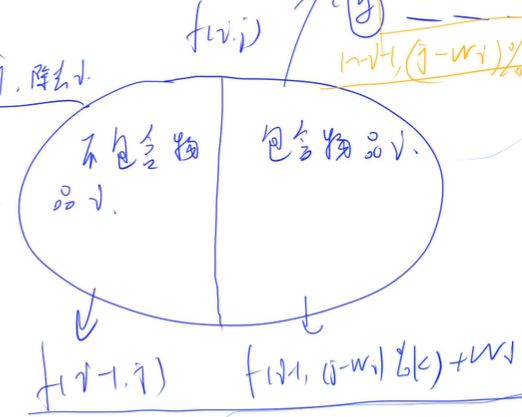 f(i,j)
1~i-1, (j-wi)%
除去i.
不包含物
品i.
包含物品i.
f(i-1, j)
f(i-1, (j-wi)%k)+wi